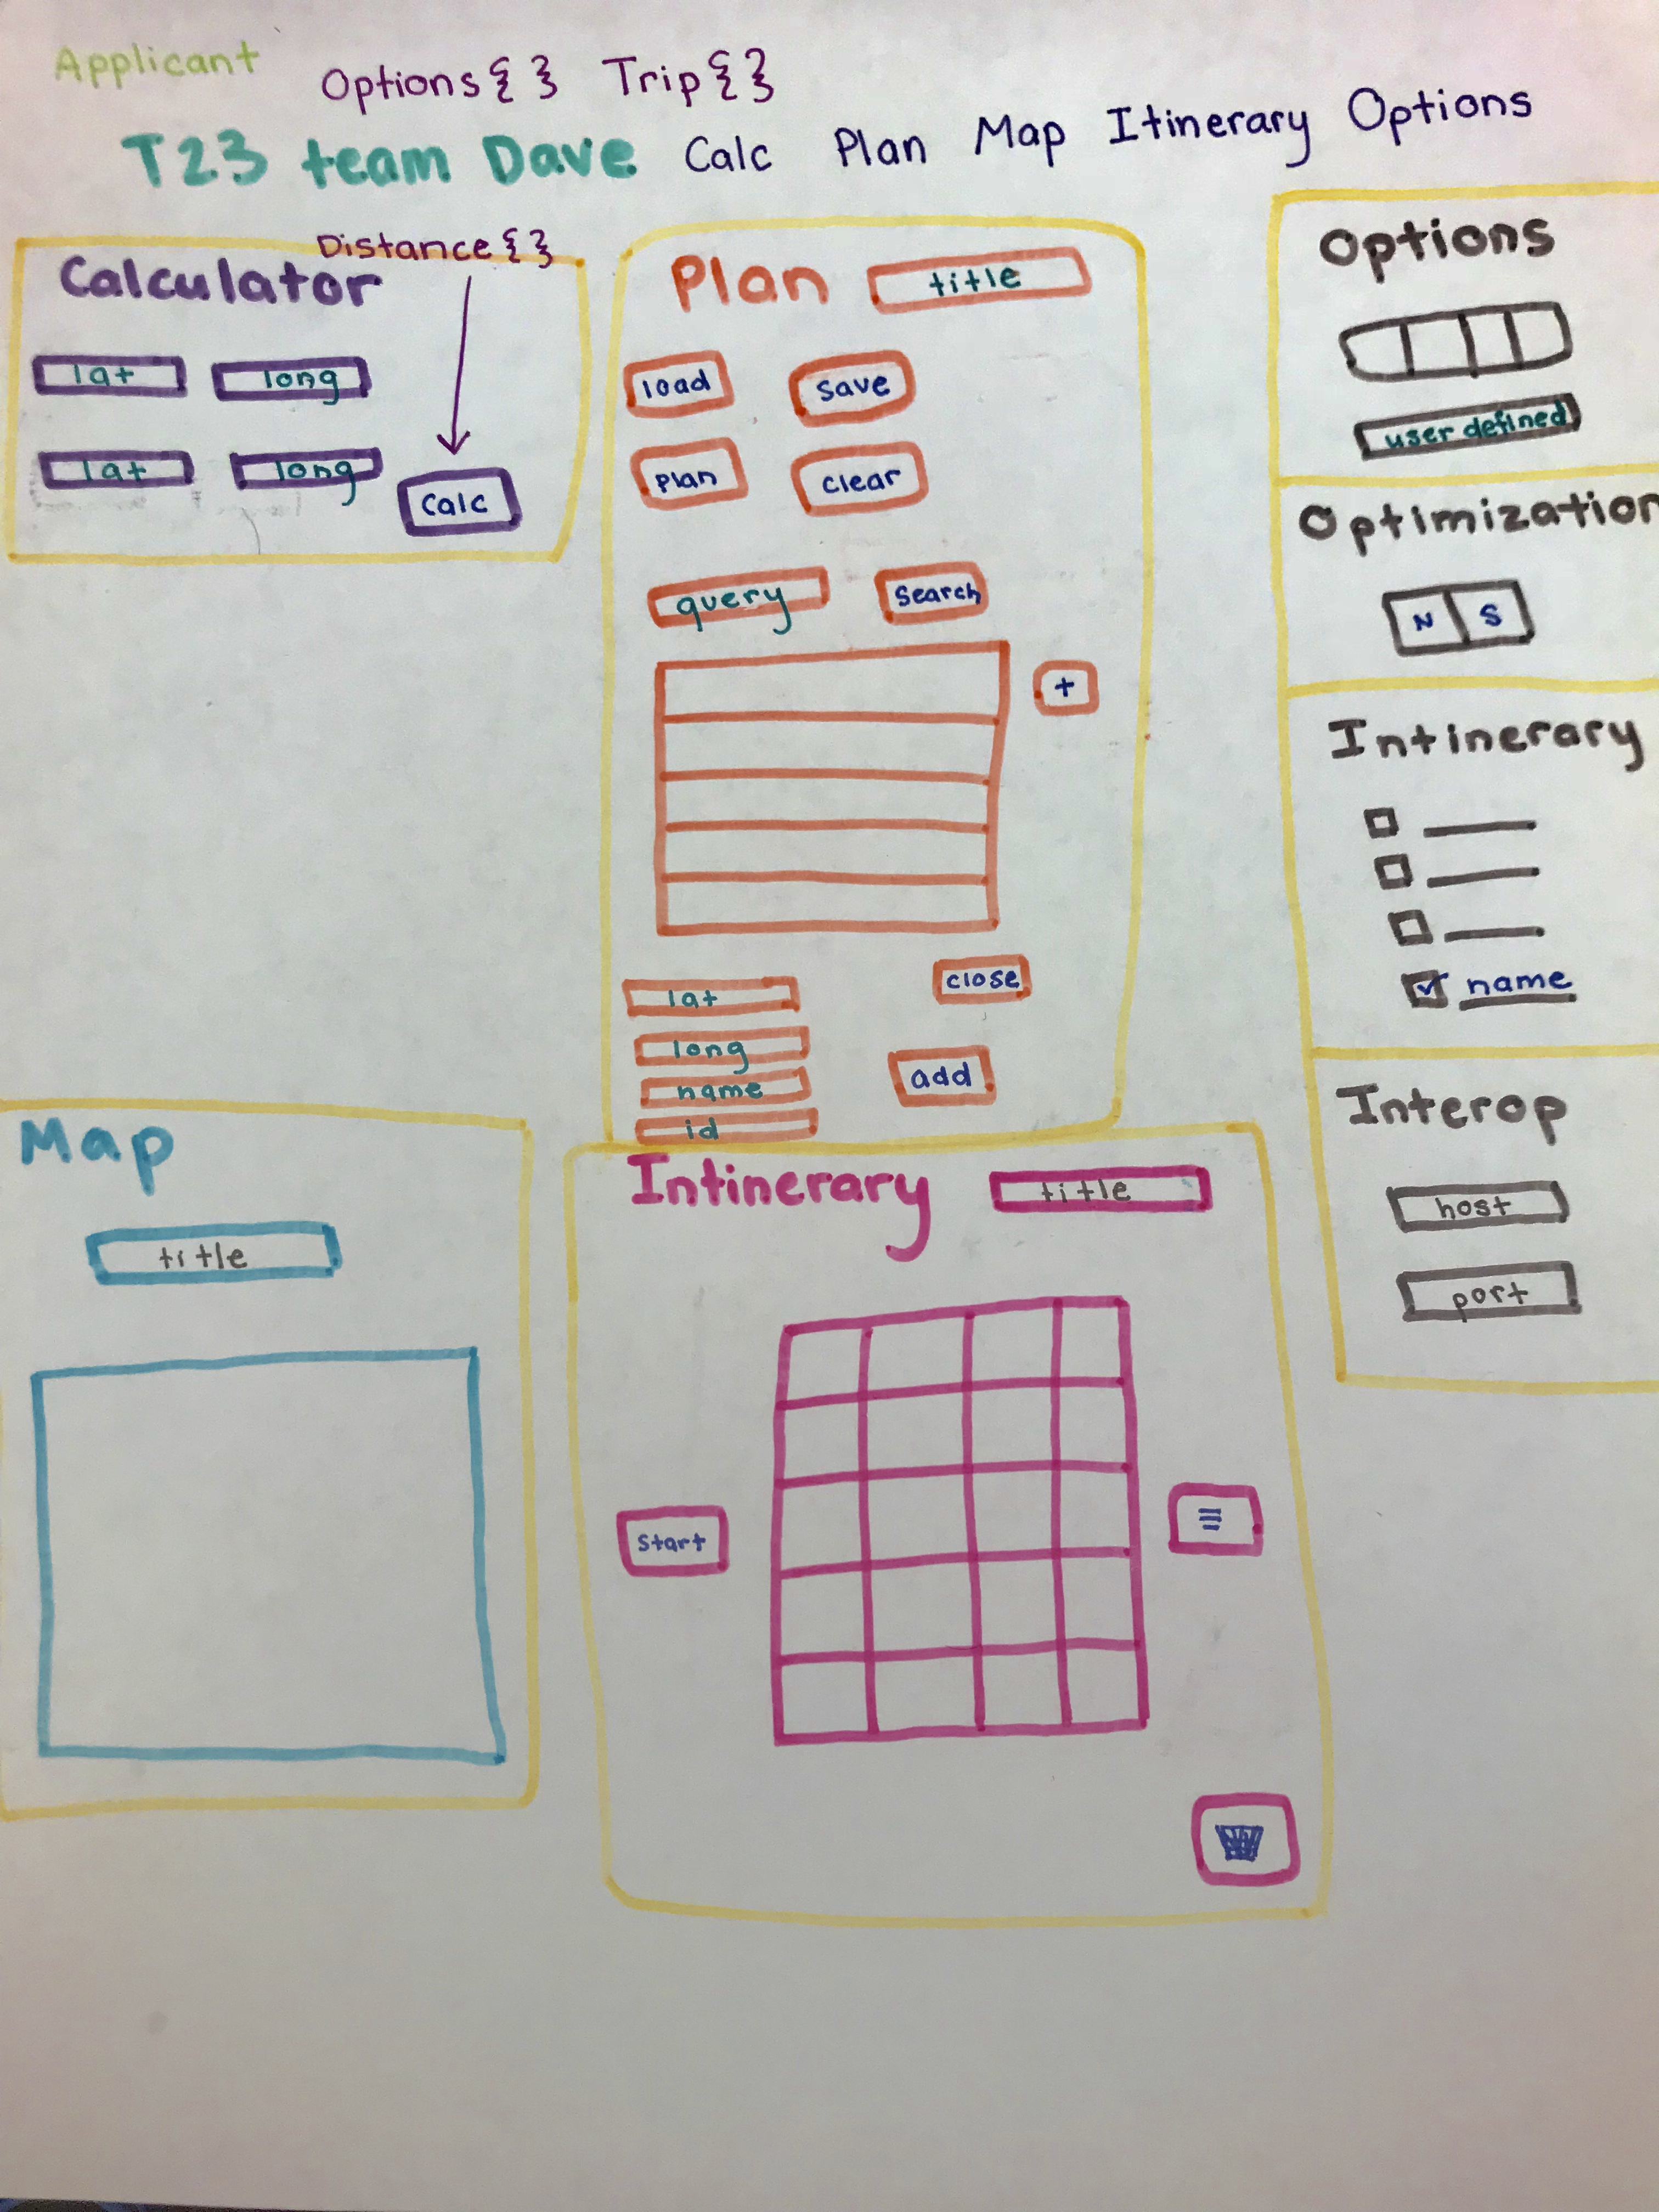 Applicant
Options{} Trip{}
T23 team Dave Calc Plan Map Itinerary Options
Distance{}
Calculator
lat long
lat long
Calc
Plan title
load save
plan clear
query search
+
close
lat
long
name
id
add
Options
user defined
Optimization
N S
Intinerary
name
Interop
host
port
Map
title
Intinerary title
Start